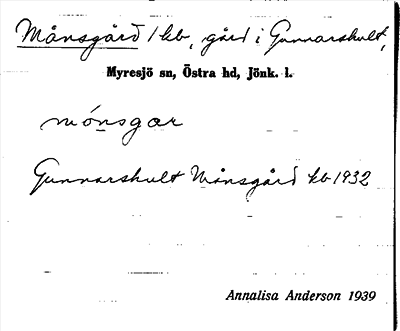 Månsgård / kb, gård i Gunnarshult,
Myresjö sn, Östra hd, Jönk. l.
mónsgar
Gunnarshult Månsgård kb 1932
Annalisa Anderson 1939